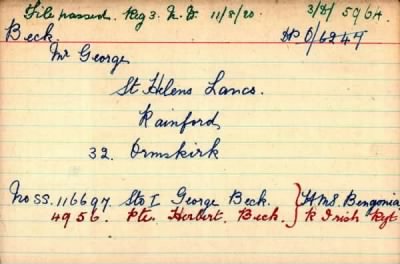 File passed. Reg 3. N. Z. 11/8/20. 3/8/ 5964
Beck. HP O/6247
Mr George
St Helens Lancs.
Rainford
32. Ormskirk
No SS. 116697. Sto I George Beck. } H.M.S. Bengonia
4956. Pte. Herbert. Beck. } R Irish Regt